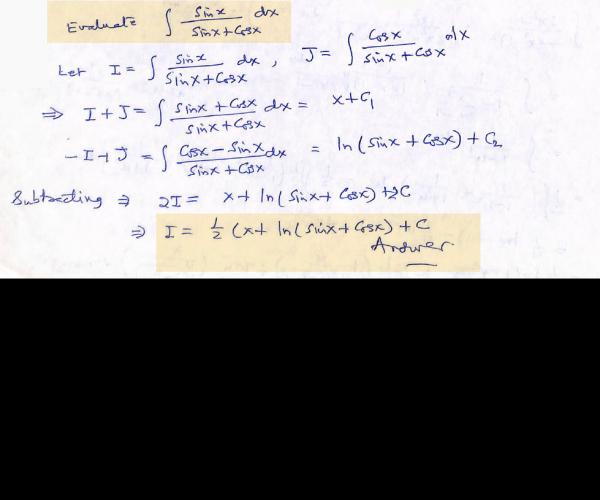 Evaluate ∫ Sinx / Sinx+Cosx dx
Let I = ∫ Sinx / Sinx+Cosx dx, J = ∫ Cosx / Sinx+Cosx dx
⇒ I+J = ∫ Sinx+Cosx / Sinx+Cosx dx = x+C₁
-I+J = ∫ Cosx-Sinx / Sinx+Cosx dx = ln(Sinx+Cosx)+C₂
Subtracting ⇒ 2I = x+ ln(Sinx+Cosx)+2C
⇒ I = 1/2 (x+ ln(Sinx+Cosx)+C
Answer